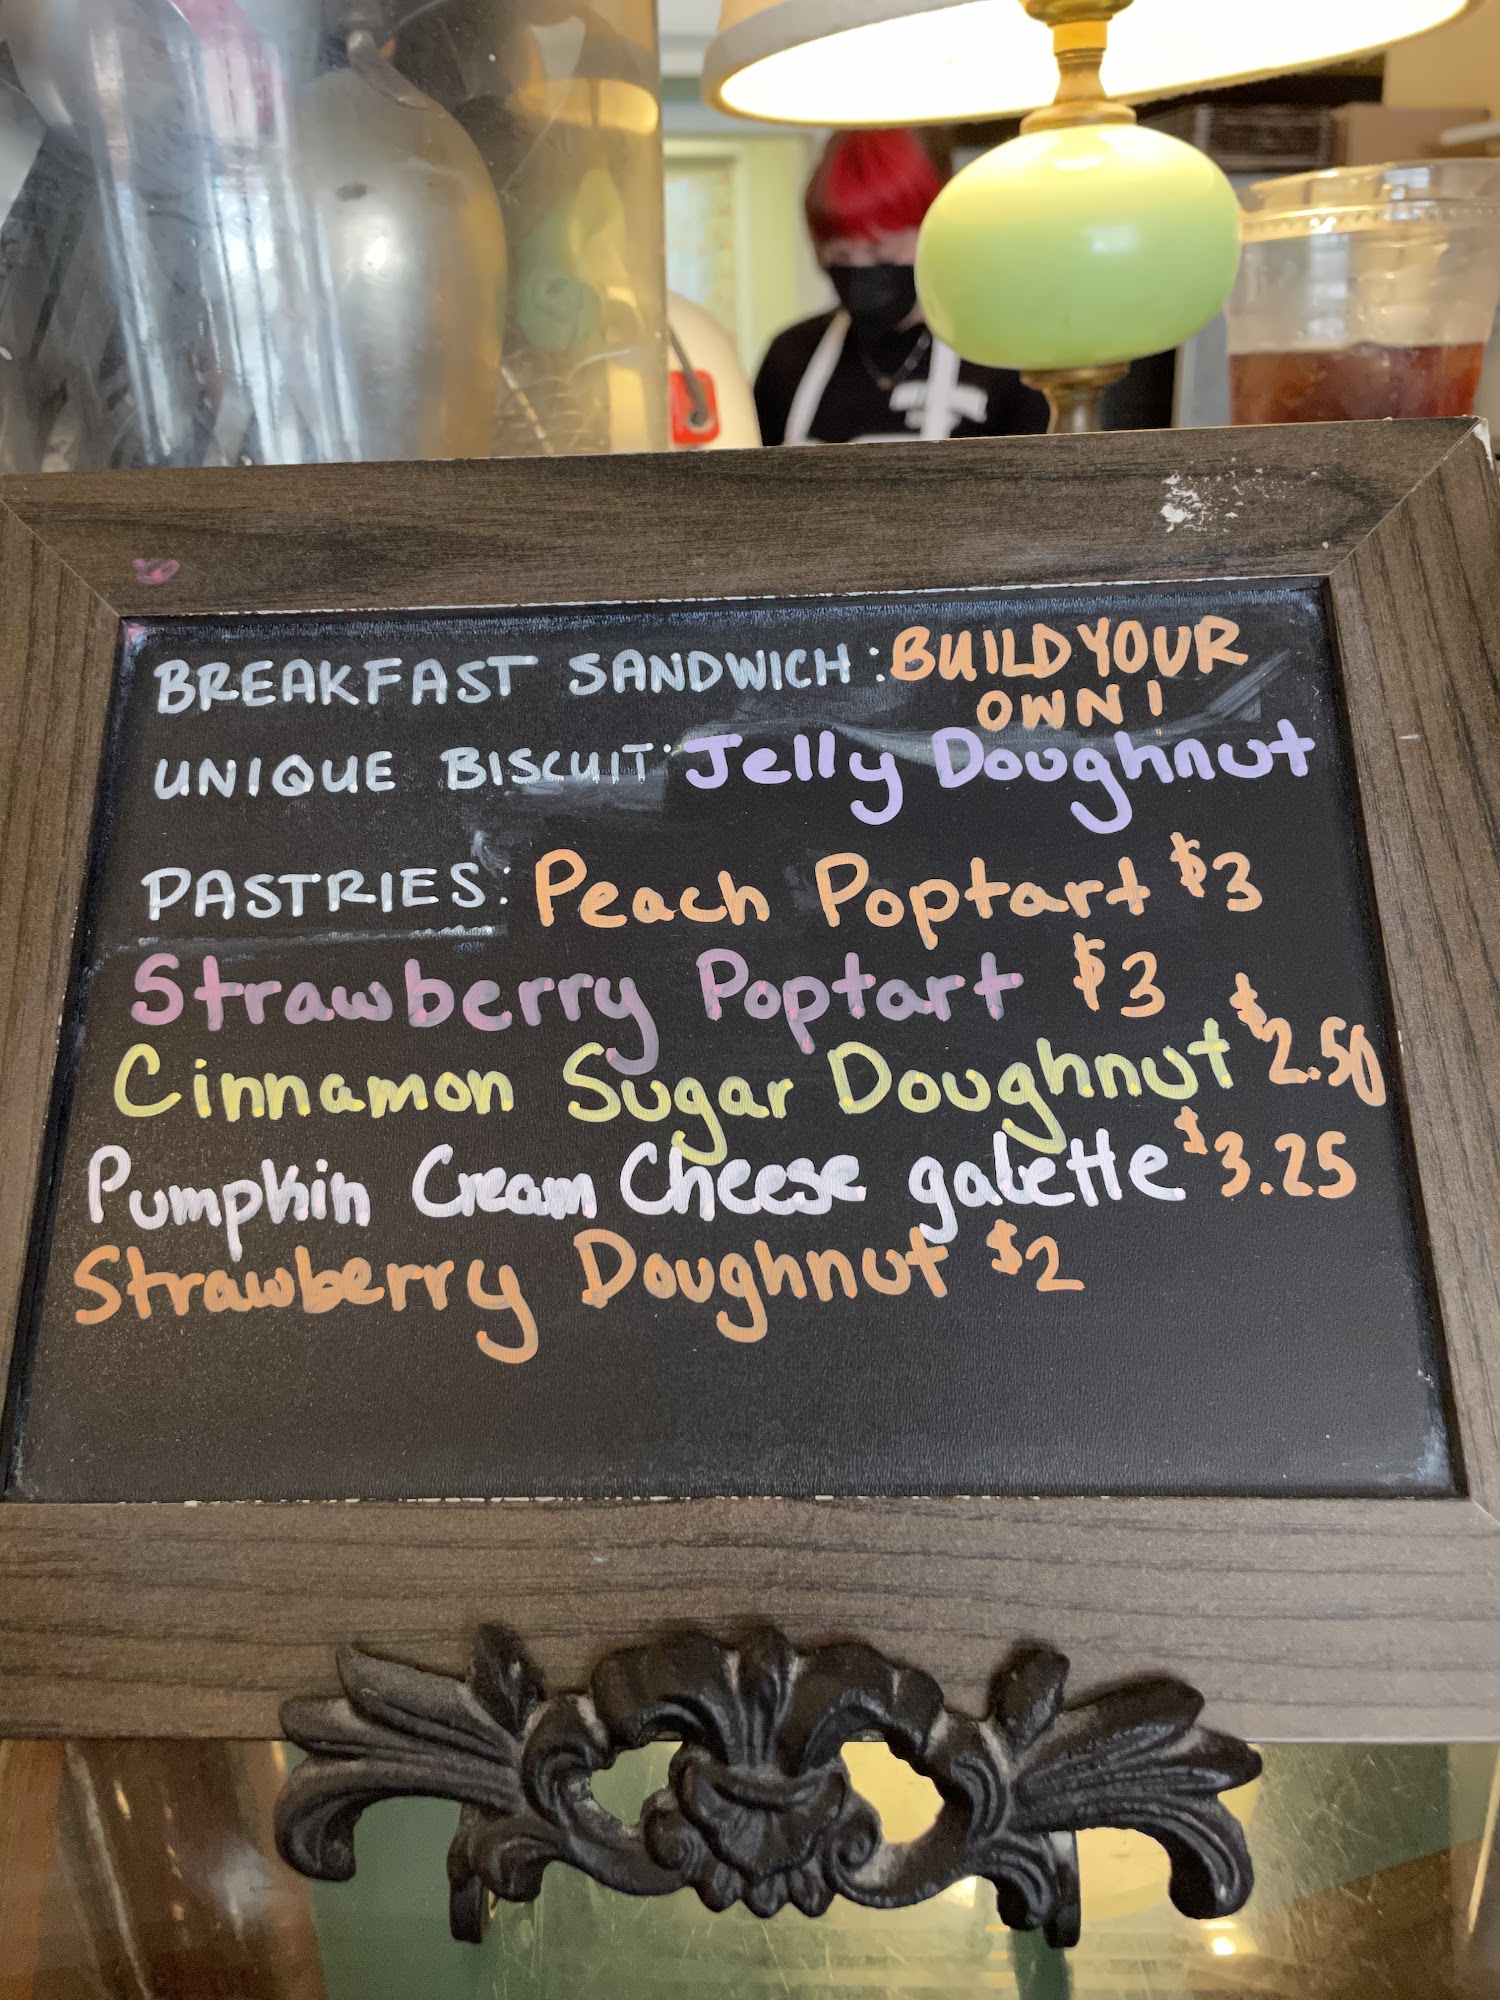 BREAKFAST SANDWICH: BUILD YOUR
OWN!
UNIQUE BISCUIT: Jelly Doughnut
PASTRIES: Peach Poptart $3
Strawberry Poptart $3
Cinnamon Sugar Doughnut $2.50
Pumpkin Cream Cheese galette $3.25
Strawberry Doughnut $2